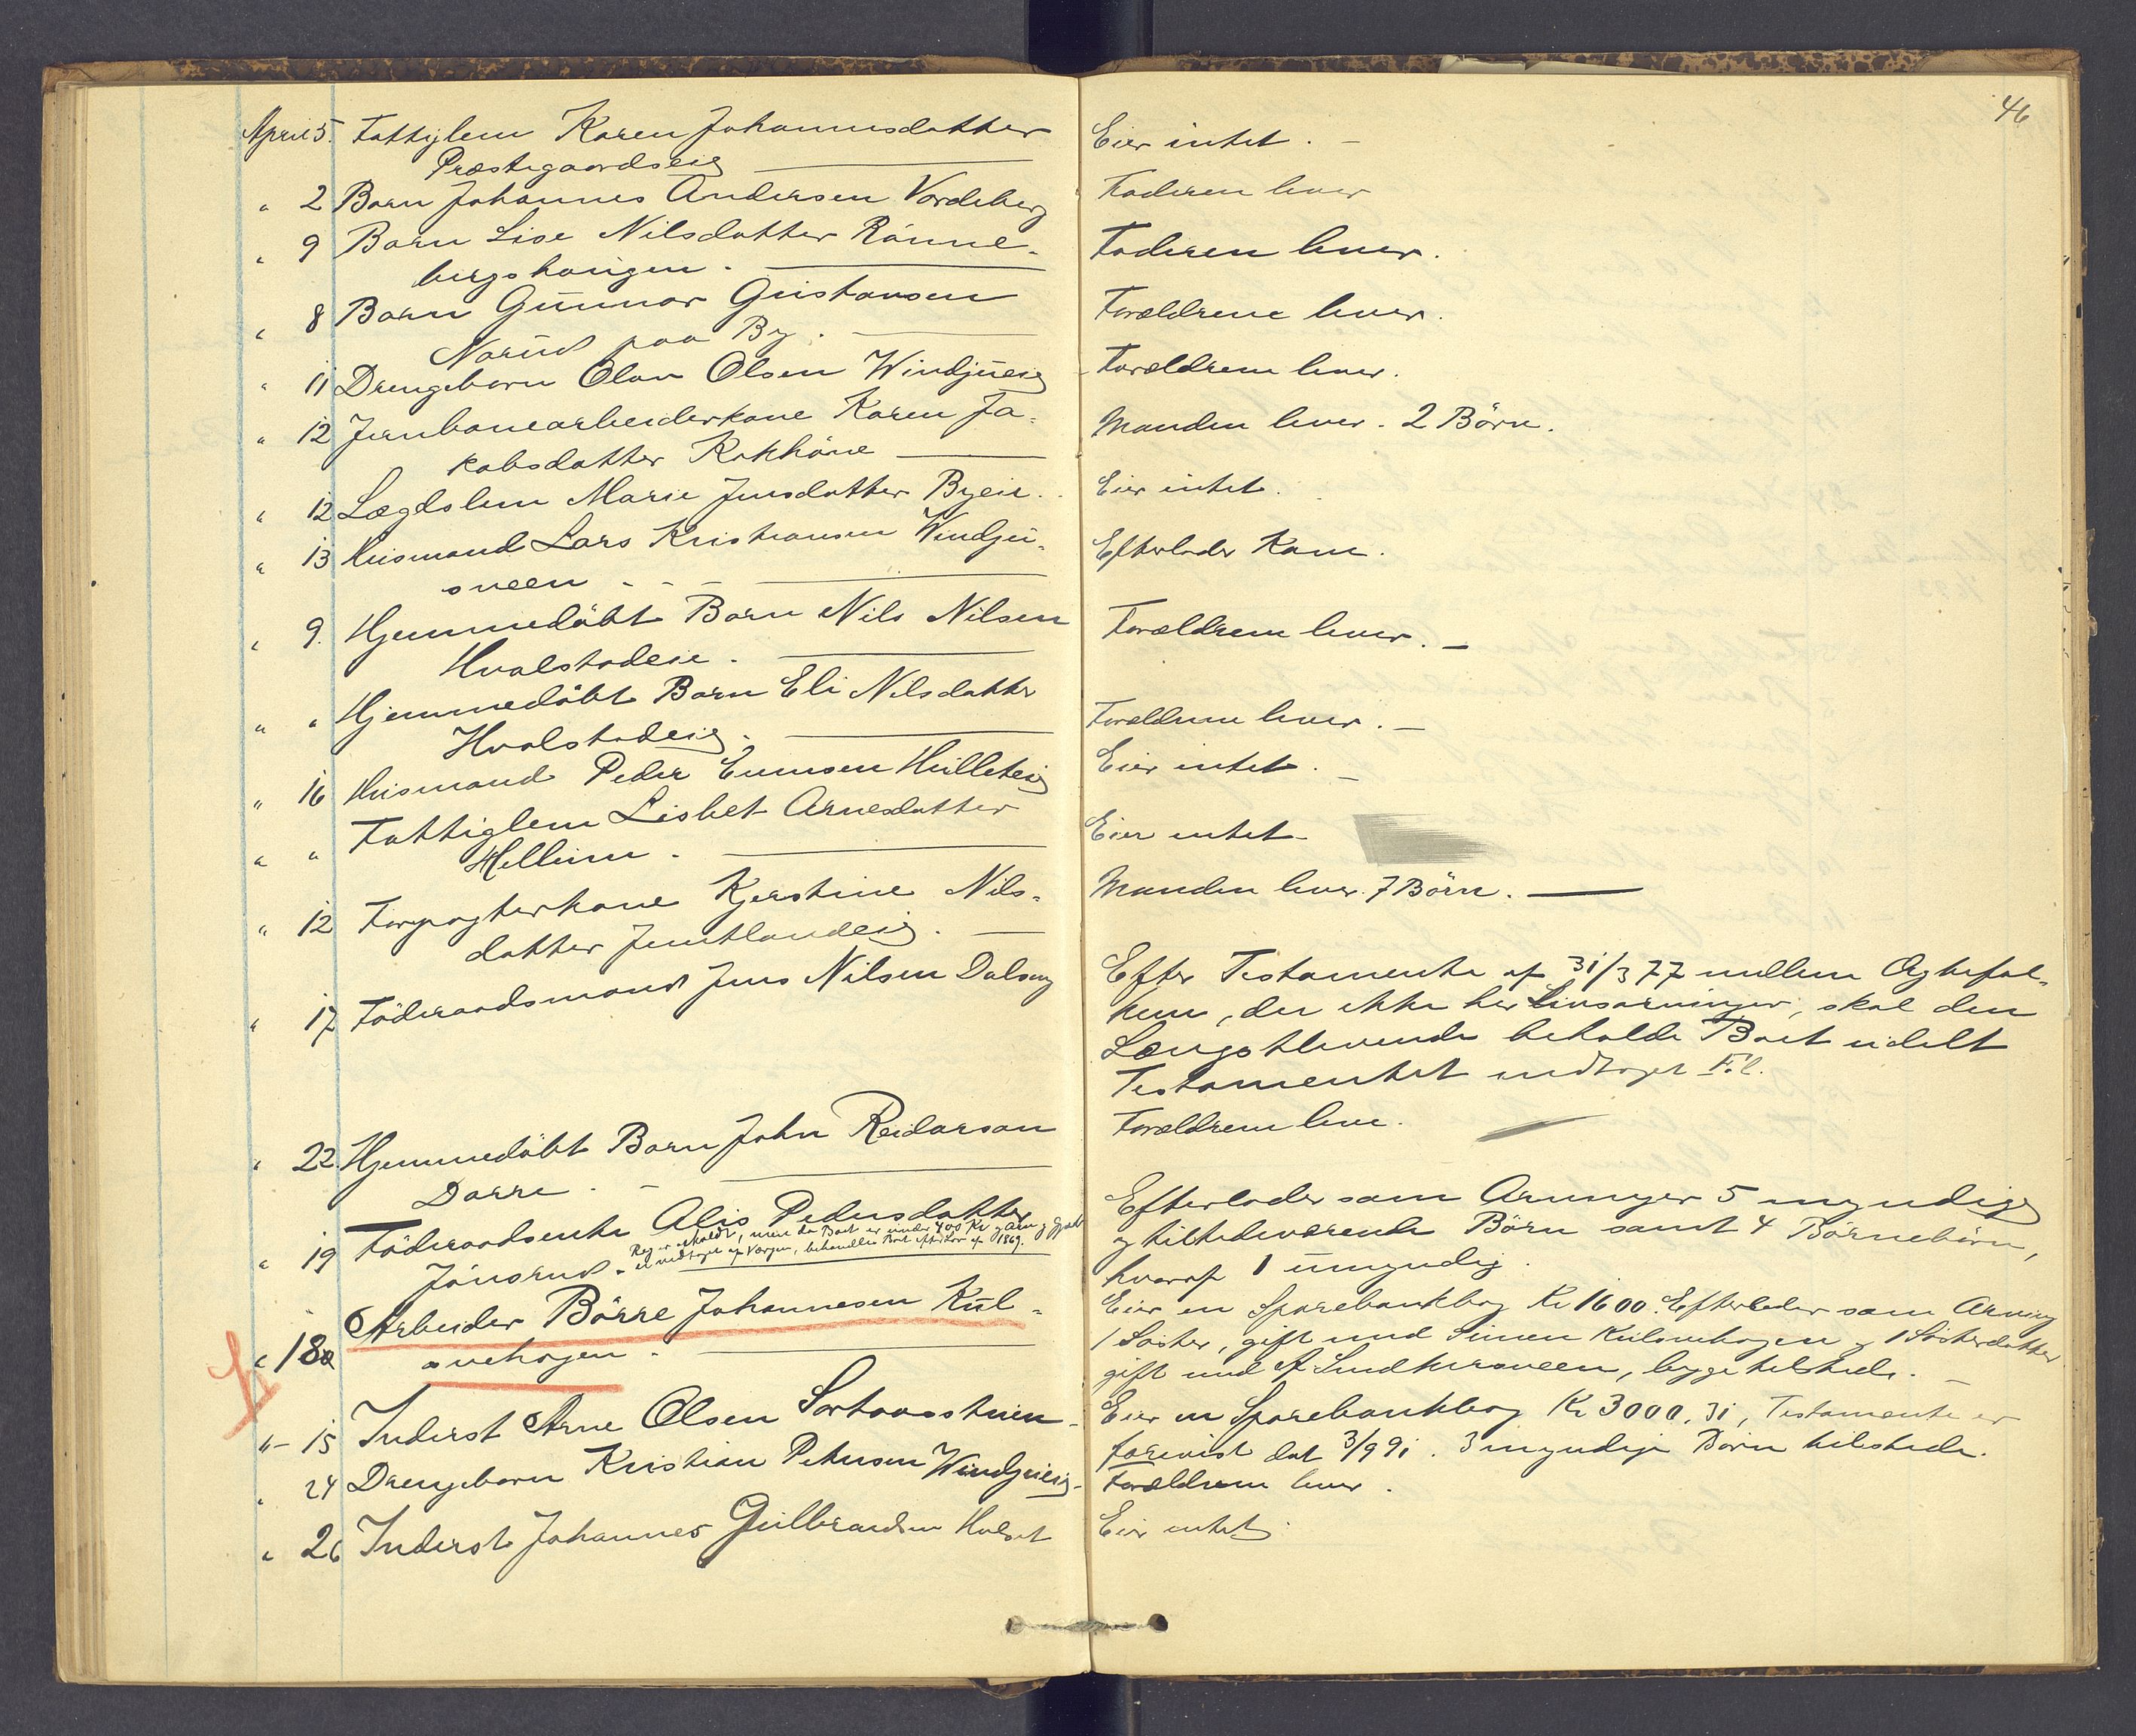 46
April 5. Fattiglem Karen Johannesdatter
Præstegaardseig
Eier intet. -
" 2 Barn Johannes Andersen Vordeberg
Faderen lever
" 9 Barn Lise Nilsdatter Rönne-
bergshaugen.
Faderen lever.
" 8 Barn Gunnar Gustavsen
Narud paa By.
Forældrene lever.
" 11 Drengebarn Olav Olsen Windjueig
Forældrene lever.
" 12 Jernbanearbeiderkone Karen Ja-
kobsdatter
Manden lever. 2 Börn.
" 12 Lægdslem Marie Jensdatter Byeie.
Eier intet.
" 13 Husmand Lars Kristiansen Windju-
sveen - - -
Efterlader Kone.
" 9. Hjemmedöbt Barn Nils Nilsen
Hvalstadeie.
Forældrene lever. -
" " Hjemmedöbt Barn Eli Nilsdatter
Hvalstadeig.
Forældrene lever. -
" 16 Husmand Peder Evensen Hulleteig
Eier intet. -
" " Fattiglem Lisbet Arnesdatter
Hellerin.
Eier intet -
" 12 Forpagterkone Kjerstine Nils-
datter Jemtlandeig.
Manden lever. 7 Börn.
" 17 Föderaadsmand Jens Nilsen Dalseg
Efter Testamente af 31/3 77 mellem Ægtefol-
kene, der ikke har Livsarvinger, skal den
Længstlevende beholde Boet udelt
Testamentet indtaget Fol.
" 22. Hjemmedöbt Barn John Reidarson
Darre. -
Forældrene leve.
" 19 Föderaadsenke Alis Pedersdatter
Jönsrud.
Reg er afholdt, men da Boet er under 400 Kr og Arv og Gjæld
er vedtaget af Værgen, behandles Boet efter Lov af 1869.
Efterlader som Arvinger 5 myndige
og tilstedeværende Börn samt 4 Börnebörn,
hvoraf 1 umyndig.
" 18 Arbeider Börre Johannesen Kul-
svehagen.
Eier en Sparebankbog Kr 1600. Efterlader som Arving
1 Söster, gift med Simen Kulsvehagen og 1 Sösterdatter
gift med A Lindkersveen, begge tilstede. -
"- 15 Inderst Arne Olsen
Eier en Sparebankbog Kr 3000.31, Testamente er
forevist dat 3/9 91. 3 myndige Börn tilstede.
" 24 Drengebarn Kristian Petersen Windjueig-
Forældrene lever.
" 26 Inderst Johannes Gulbrandsen
Eier intet